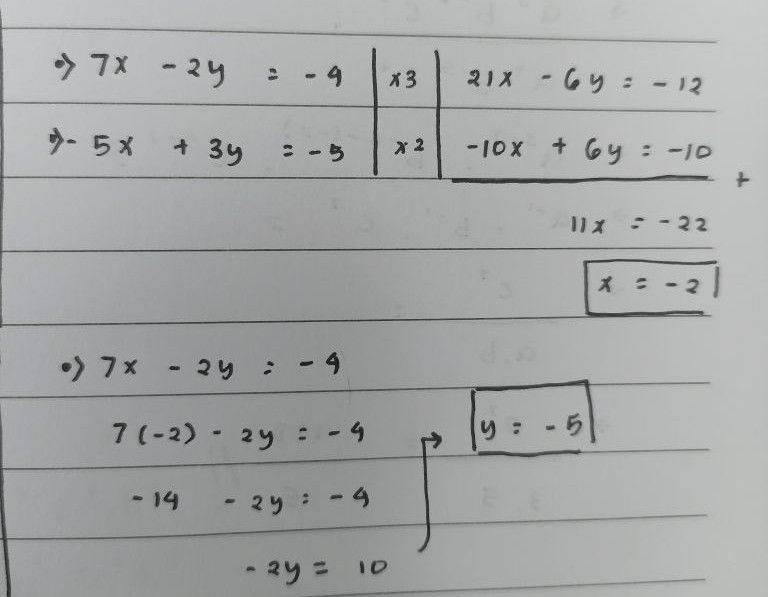 •> 7x - 2y = -4 | x3 | 21x - 6y = -12
•> -5x + 3y = -5 | x2 | -10x + 6y = -10
+
11x = -22
x = -2
•> 7x - 2y = -4
7(-2) - 2y = -4 → y = -5
-14 - 2y = -4
-2y = 10